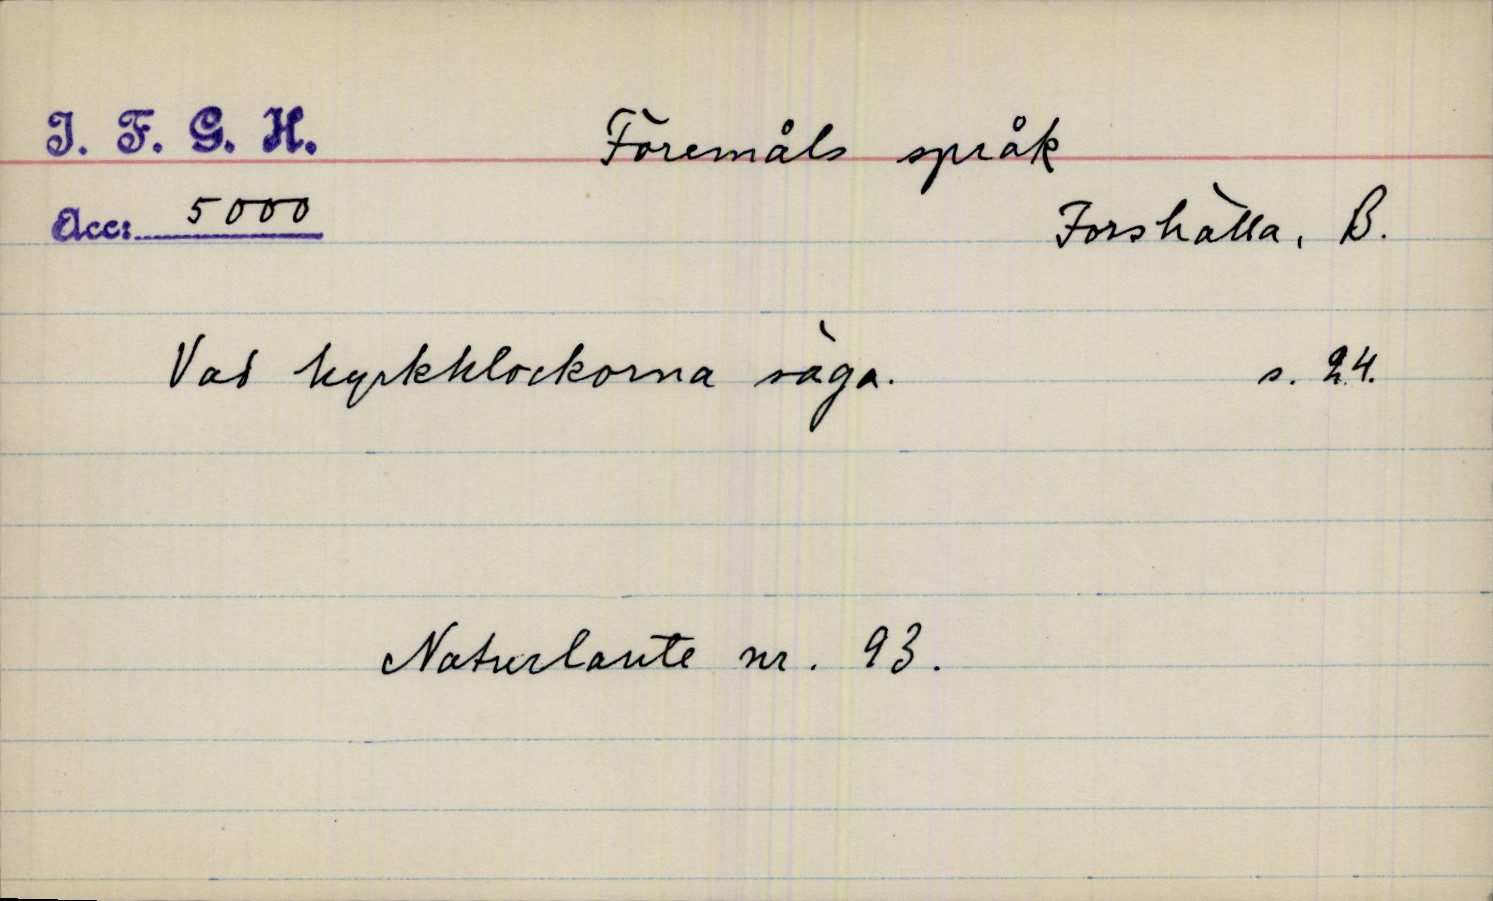 I. F. G. H.
Föremåls språk
Acc: 5000
Forshälla, B.
Vad kyrkklockorna säga. s. 24.
Naturlaute nr. 93.